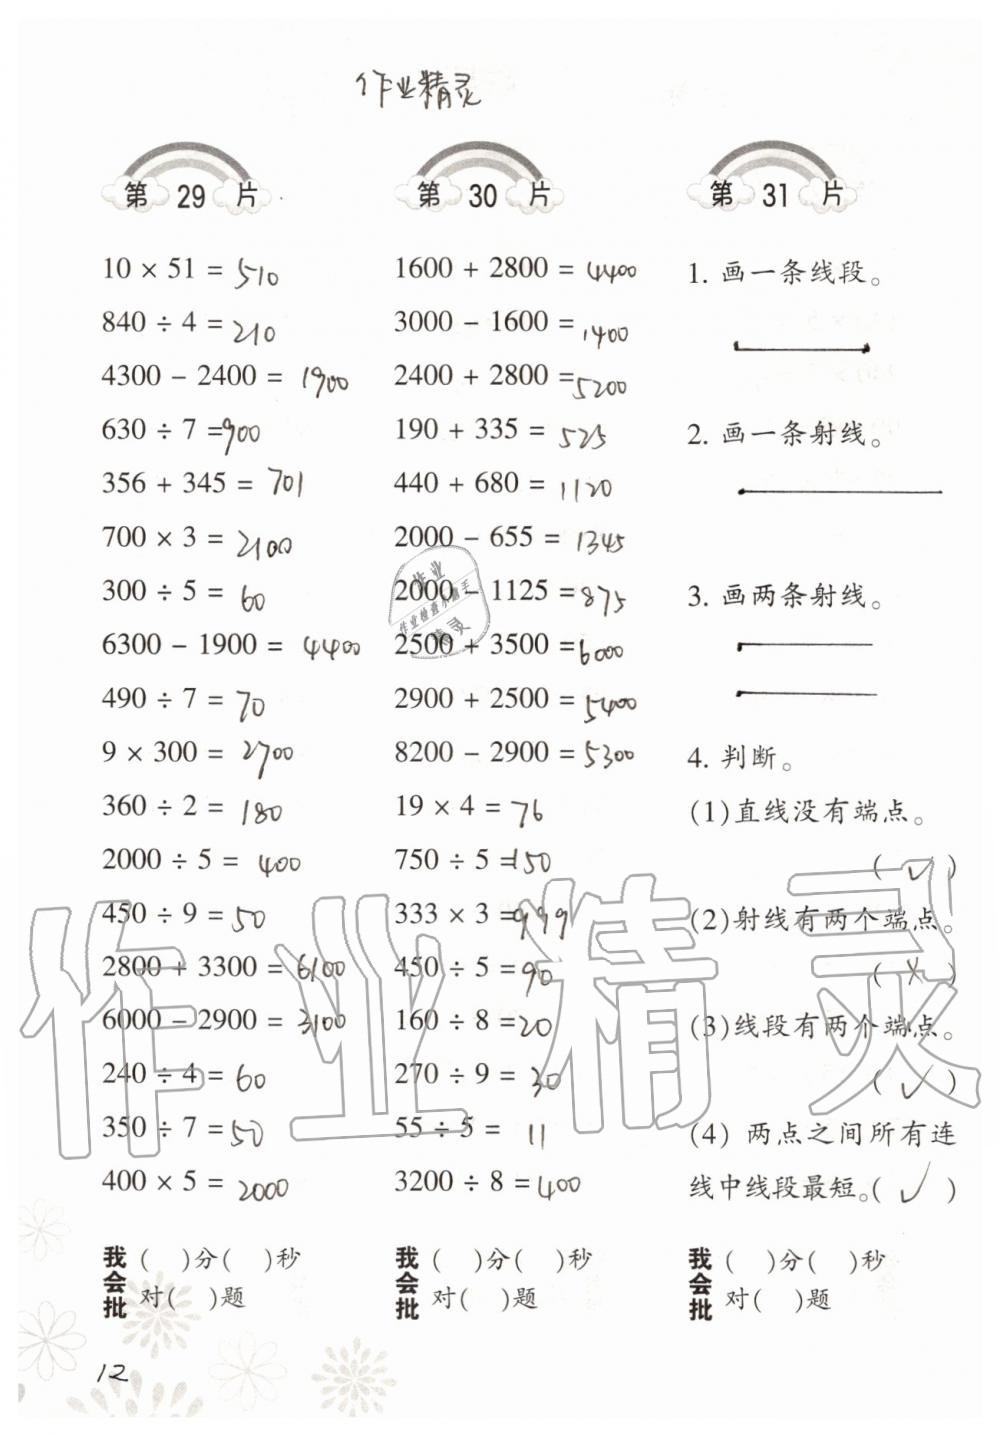 作业精灵
第 29 片
10 × 51 = 510
840 ÷ 4 = 210
4300 − 2400 = 1900
630 ÷ 7 = 900
356 + 345 = 701
700 × 3 = 2100
300 ÷ 5 = 60
6300 − 1900 = 4400
490 ÷ 7 = 70
9 × 300 = 2700
360 ÷ 2 = 180
2000 ÷ 5 = 400
450 ÷ 9 = 50
2800 + 3300 = 6100
6000 − 2900 = 3100
240 ÷ 4 = 60
350 ÷ 7 = 50
400 × 5 = 2000
我会批
( )分( )秒
对( )题
第 30 片
1600 + 2800 = 4400
3000 − 1600 = 1400
2400 + 2800 = 5200
190 + 335 = 525
440 + 680 = 1120
2000 − 655 = 1345
2000 − 1125 = 875
2500 + 3500 = 6000
2900 + 2500 = 5400
8200 − 2900 = 5300
19 × 4 = 76
750 ÷ 5 = 150
333 × 3 = 999
450 ÷ 5 = 90
160 ÷ 8 = 20
270 ÷ 9 = 30
55 ÷ 5 = 11
3200 ÷ 8 = 400
我会批
( )分( )秒
对( )题
第 31 片
1. 画一条线段。
2. 画一条射线。
3. 画两条射线。
4. 判断。
(1)直线没有端点。
( ✓ )
(2)射线有两个端点。
( × )
(3)线段有两个端点。
( ✓ )
(4) 两点之间所有连
线中线段最短。( ✓ )
我会批
( )分( )秒
对( )题
12
作业
作业检查小助手
精灵
作业精灵